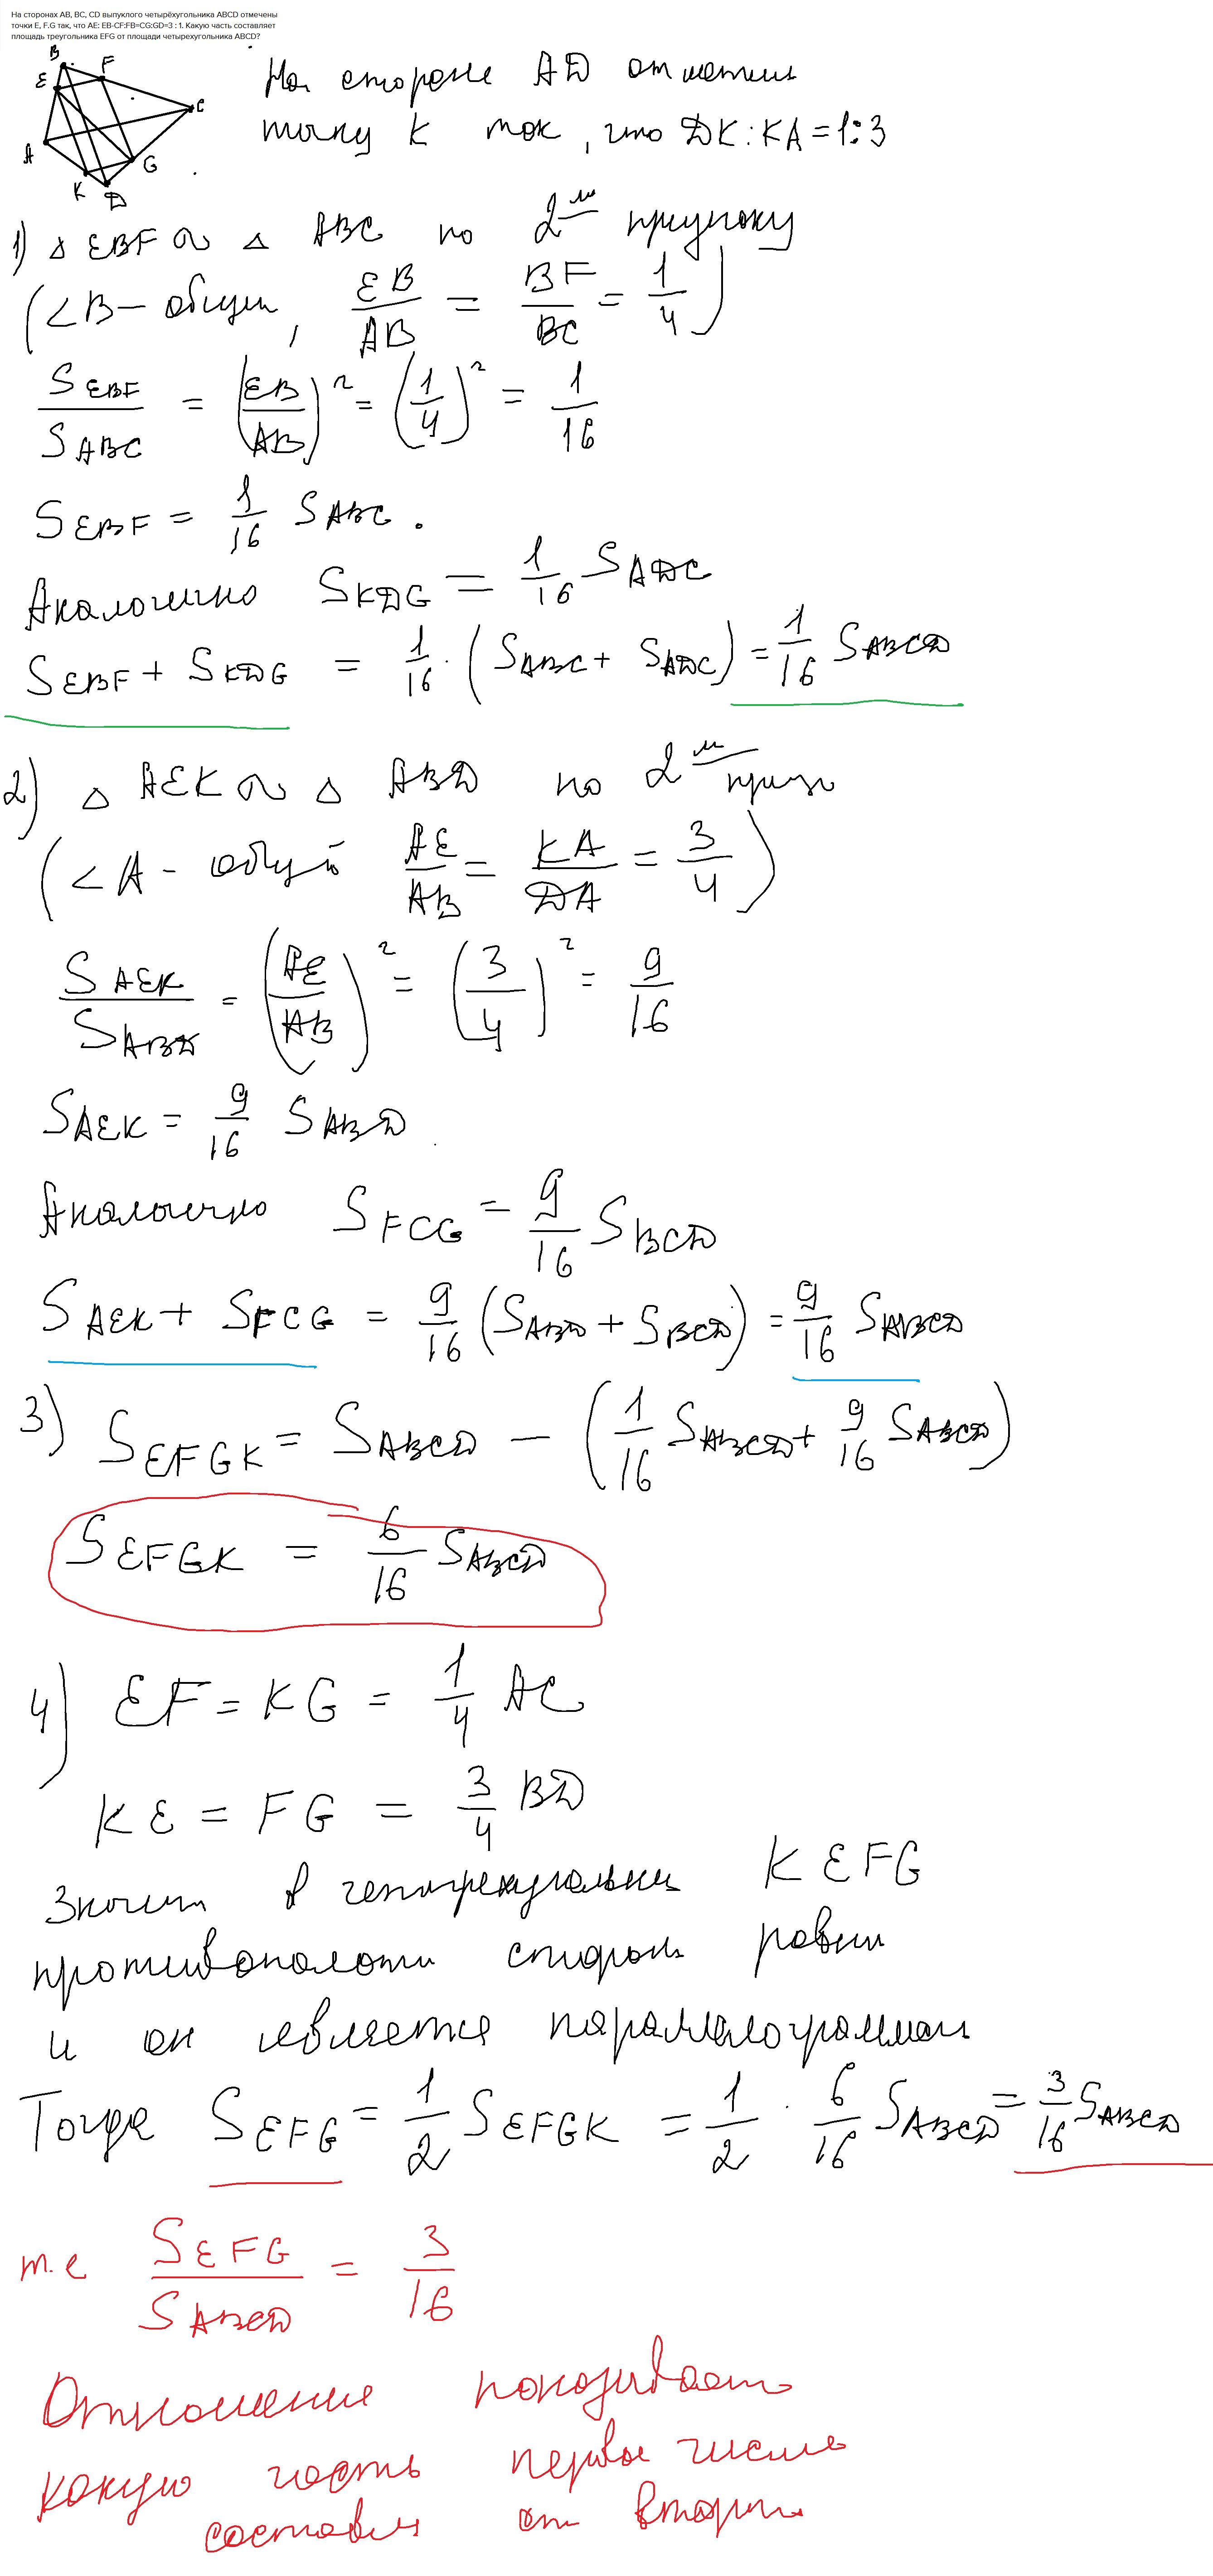 На сторонах AB, BC, CD выпуклого четырёхугольника ABCD отмечены
точки E, F.G так, что AE: EB-CF:FB=CG:GD=3 : 1. Какую часть составляет
площадь треугольника EFG от площади четырехугольника ABCD?
B
E F
C
A
G
K
D
На стороне AD отметим
точку K так, что DK:KA=1:3
1) △ EBF ∾ △ ABC по 2му признаку
(∠B- общий, EB/AB = BF/BC = 1/4)
S EBF / S ABC = (EB/AB)² = (1/4)² = 1/16
S EBF = 1/16 S ABC.
Аналогично S KDG = 1/16 S ADC
S EBF + S KDG = 1/16 · (S ABC + S ADC) = 1/16 S ABCD
2) △ AEK ∾ △ ABD по 2му призн
(∠A - общий AE/AB = KA/DA = 3/4)
S AEK / S ABD = (AE/AB)² = (3/4)² = 9/16
S AEK = 9/16 S ABD
Аналогично S FCG = 9/16 S BCD
S AEK + S FCG = 9/16 (S ABD + S BCD) = 9/16 S ABCD
3) S EFGK = S ABCD - (1/16 S ABCD + 9/16 S ABCD)
S EFGK = 6/16 S ABCD
4) EF = KG = 1/4 AC
KE = FG = 3/4 BD
Значит в четырехугольнике KEFG
противополож стороны равны
и он является параллелограммом
Тогда S EFG = 1/2 S EFGK = 1/2 · 6/16 S ABCD = 3/16 S ABCD
т.е S EFG / S ABCD = 3/16
Отношение показывает
какую часть первое число
составл от второго